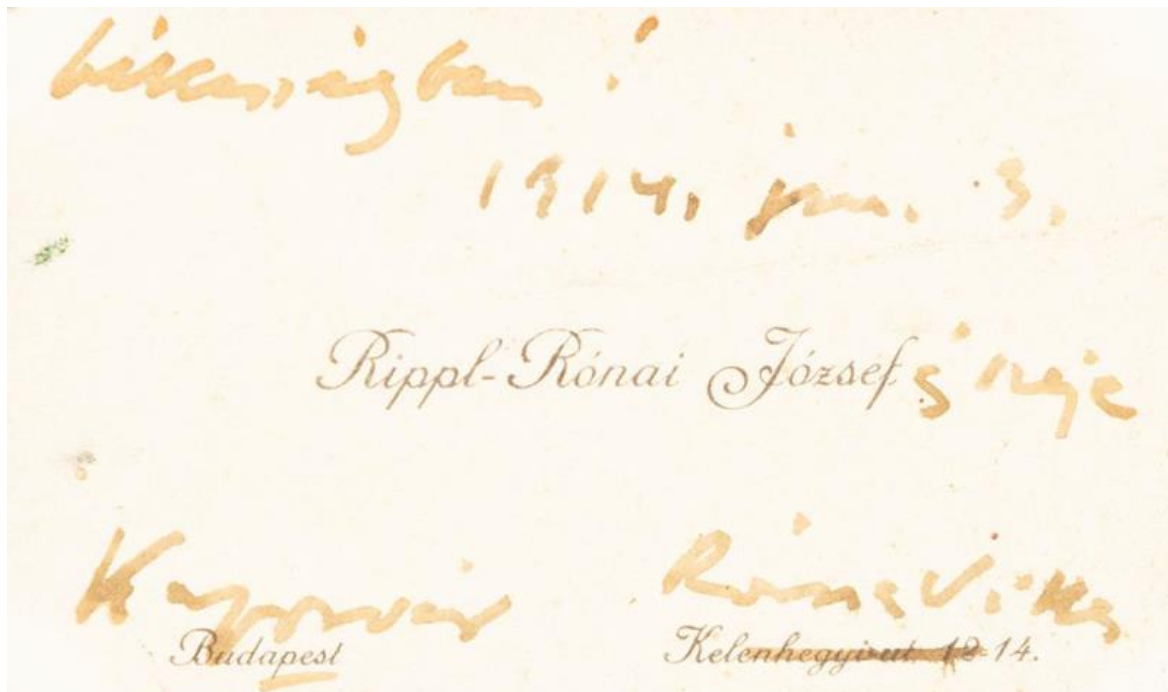 békességben !
1914. jun. 3.
Rippl-Rónai József s neje
Kaposvár Róma Villa
Budapest Kelenhegyi-ut 12-14.